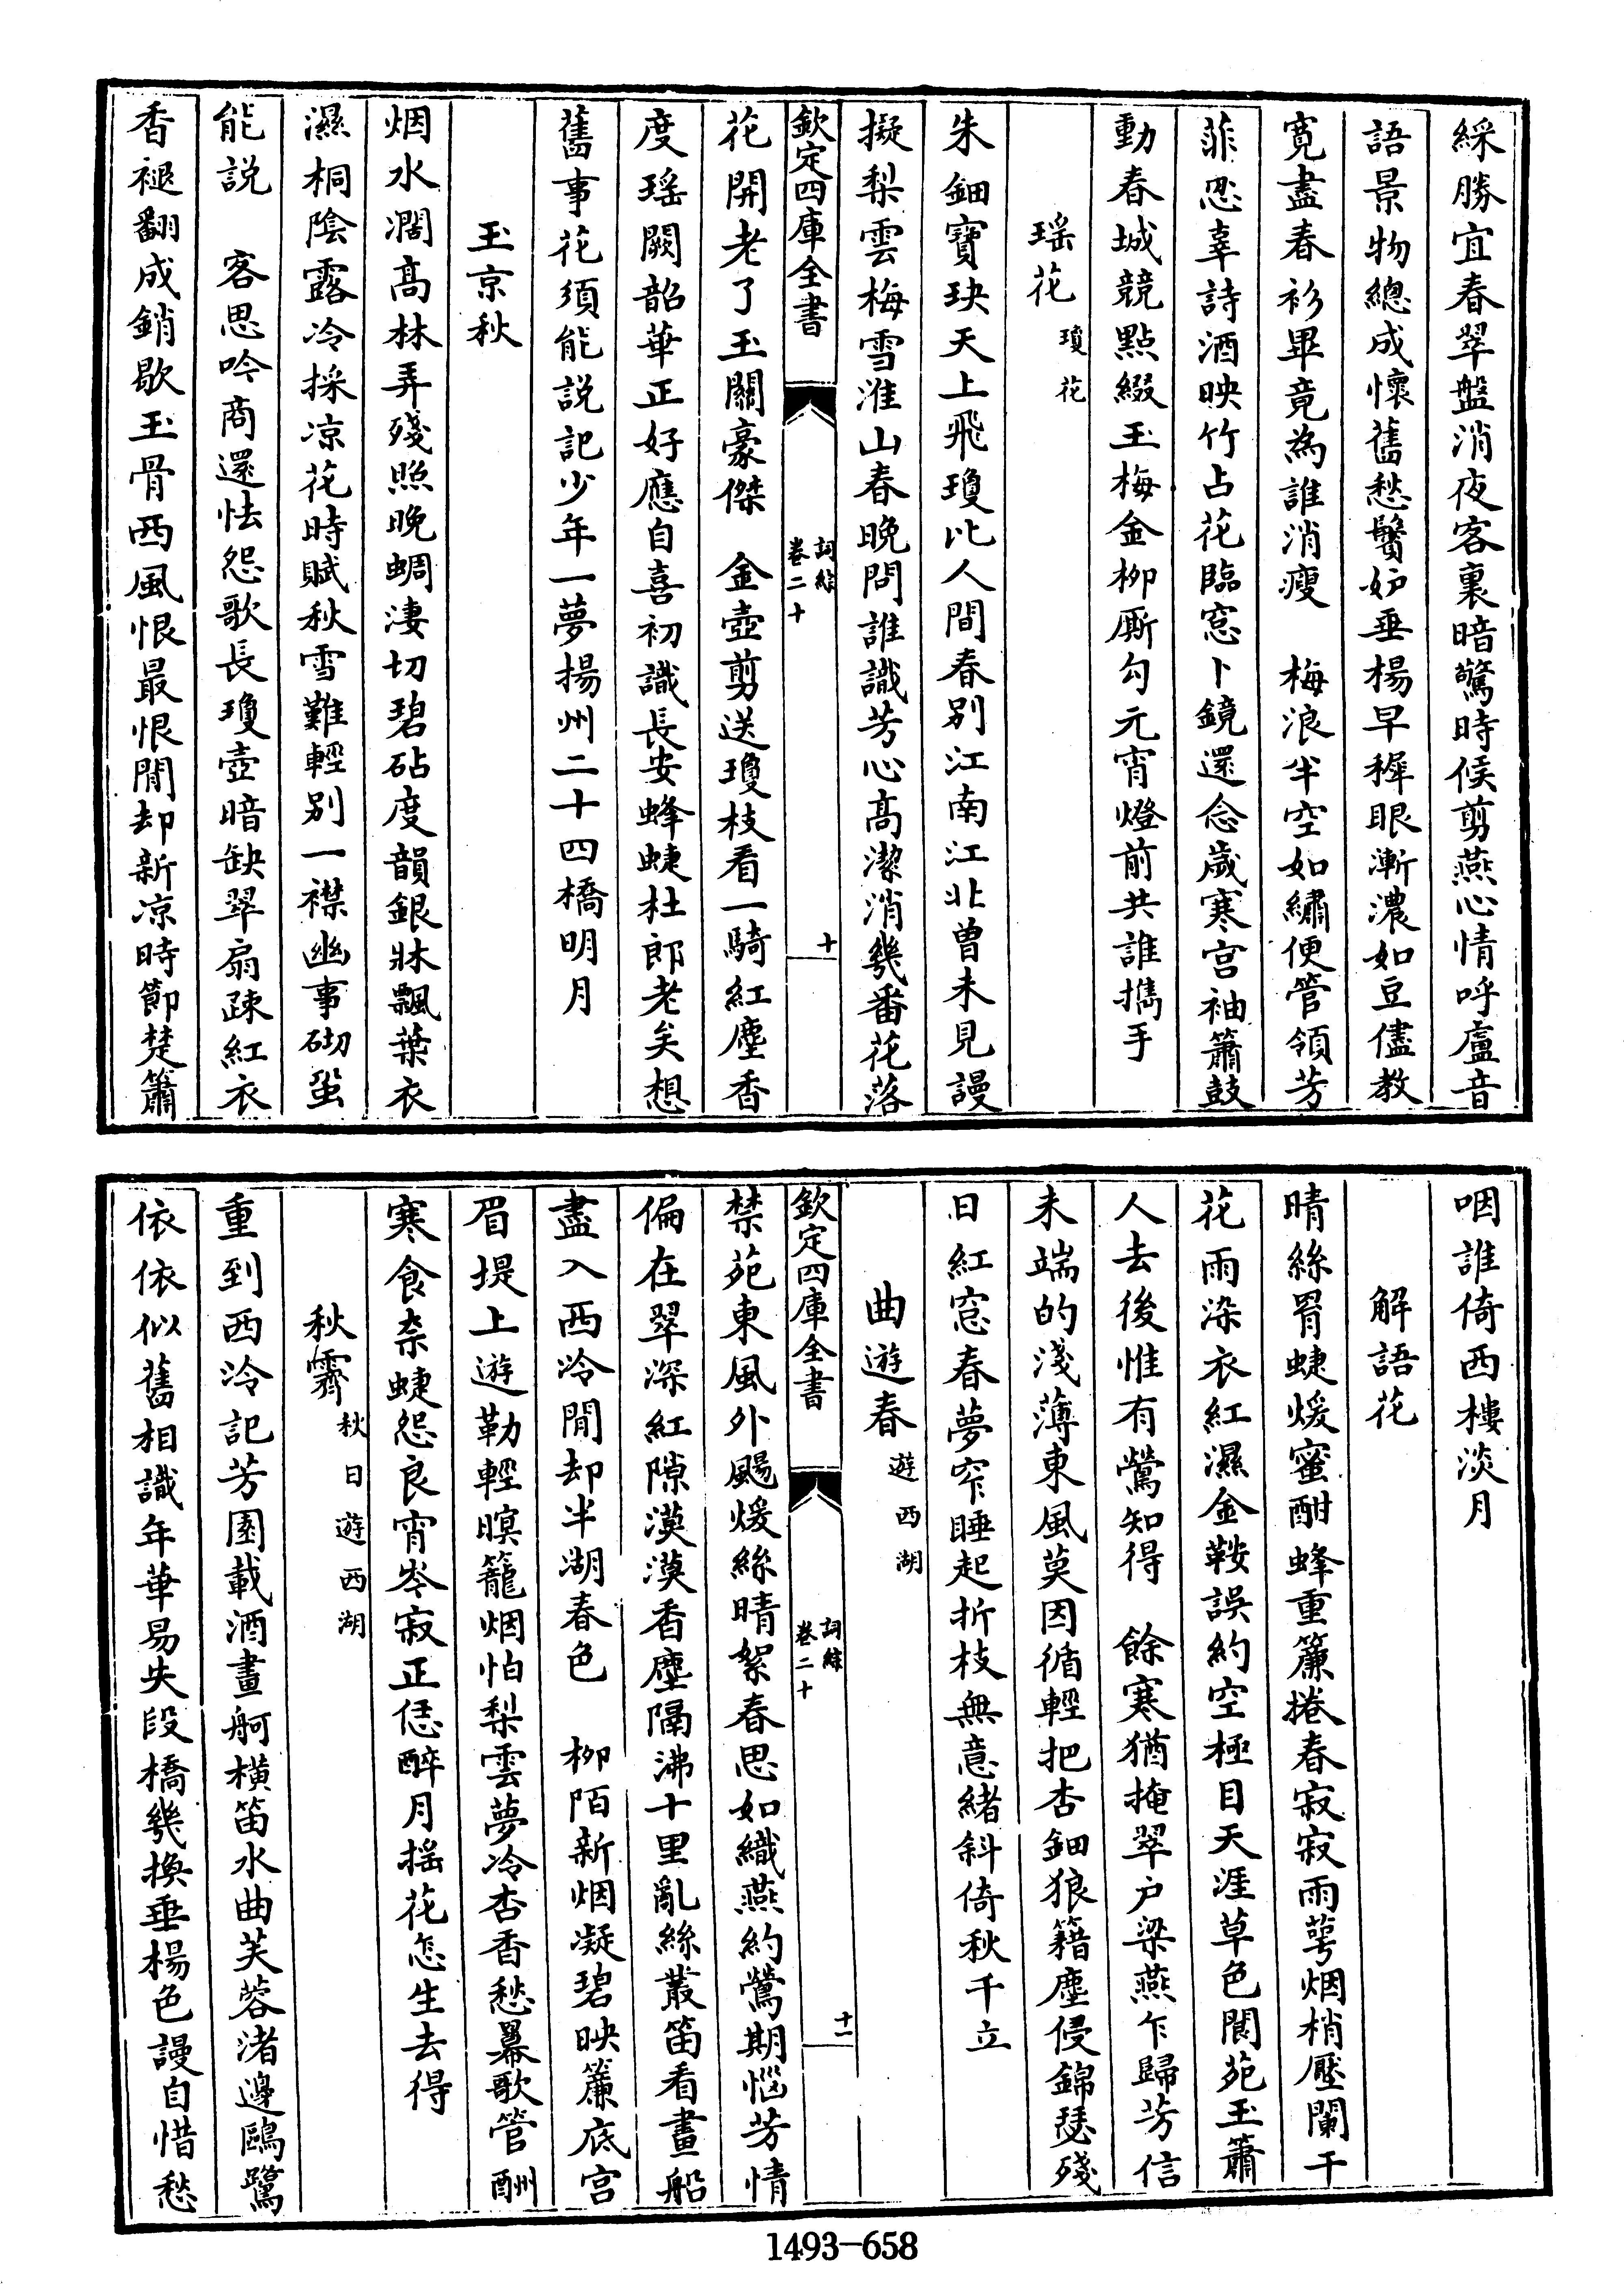 綵勝宜春翠盤消夜客裏暗驚時候剪燕心情呼盧音
語景物總成懷舊愁鬢妒垂楊早穉眼漸濃如豆儘教
寛盡春衫畢竟為誰消瘦　梅浪半空如繡便管領芳
菲忍辜詩酒映竹占花臨窓卜鏡還念歲寒宫袖簫鼓
動春城競點綴玉梅金柳厮勾元宵燈前共誰擕手
瑶花 瓊花
朱鈿寶玦天上飛瓊比人間春别江南江北曽未見謾
擬梨雲梅雪淮山春晩問誰識芳心高潔消幾番花落
欽定四庫全書
詞綜
卷二十
十
花開老了玉關豪傑　金壺剪送瓊枝看一騎紅塵香
度瑶闕韶華正好應自喜初識長安蜂蜨杜郎老矣想
舊事花須能説記少年一夢揚州二十四橋明月
玉京秋
烟水濶高林弄殘照晩蜩淒切碧砧度韻銀牀飄葉衣
濕桐陰露冷採凉花時賦秋雪難輕别一襟幽事砌蛩
能説　客思吟商還怯怨歌長瓊壺暗缺翠扇疎紅衣
香褪翻成銷歇玉骨西風恨最恨閒却新凉時節楚簫
咽誰倚西樓淡月
解語花
晴絲罥蜨煖蜜酣蜂重簾捲春寂寂雨萼烟梢壓闌干
花雨染衣紅濕金鞍誤約空極目天涯草色閬苑玉簫
人去後惟有鶯知得　餘寒猶掩翠户梁燕乍歸芳信
未端的淺薄東風莫因循輕把杏鈿狼籍塵侵錦瑟殘
日紅窓春夢窄睡起折枝無意緒斜倚秋千立
曲遊春 遊西湖
欽定四庫全書
詞綜
卷二十
十一
禁苑東風外颺煖絲晴絮春思如織燕約鶯期惱芳情
偏在翠深紅隙漠漠香塵隔沸十里亂絲叢笛看畫船
盡入西泠閒却半湖春色　柳陌新烟凝碧映簾底宫
眉堤上遊勒輕暝籠烟怕梨雲夢冷杏香愁羃歌管酬
寒食柰蜨怨良宵岑寂正恁醉月揺花怎生去得
秋霽 秋日遊西湖
重到西泠記芳園載酒畫舸横笛水曲芙蓉渚邊鷗鷺
依依似舊相識年華易失段橋幾換垂楊色謾自惜愁
1493-658